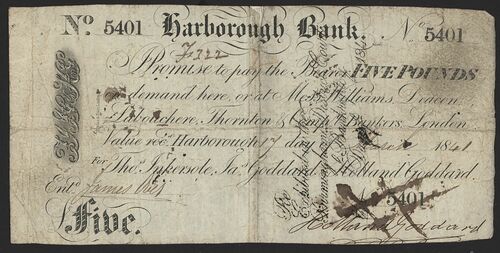 No. 5401 Harborough Bank. No. 5401
I Promise to pay the Bearer FIVE POUNDS
on demand here, or at Messrs. Williams, Deacon,
Labouchere, Thornton & Compy. Bankers, London
Value recd. Harborough 17 day of 1841
For Thos. Inkersole, Jas. Goddard & Holland Goddard.
Entd. James
No 5401
Five.
Holland Goddard